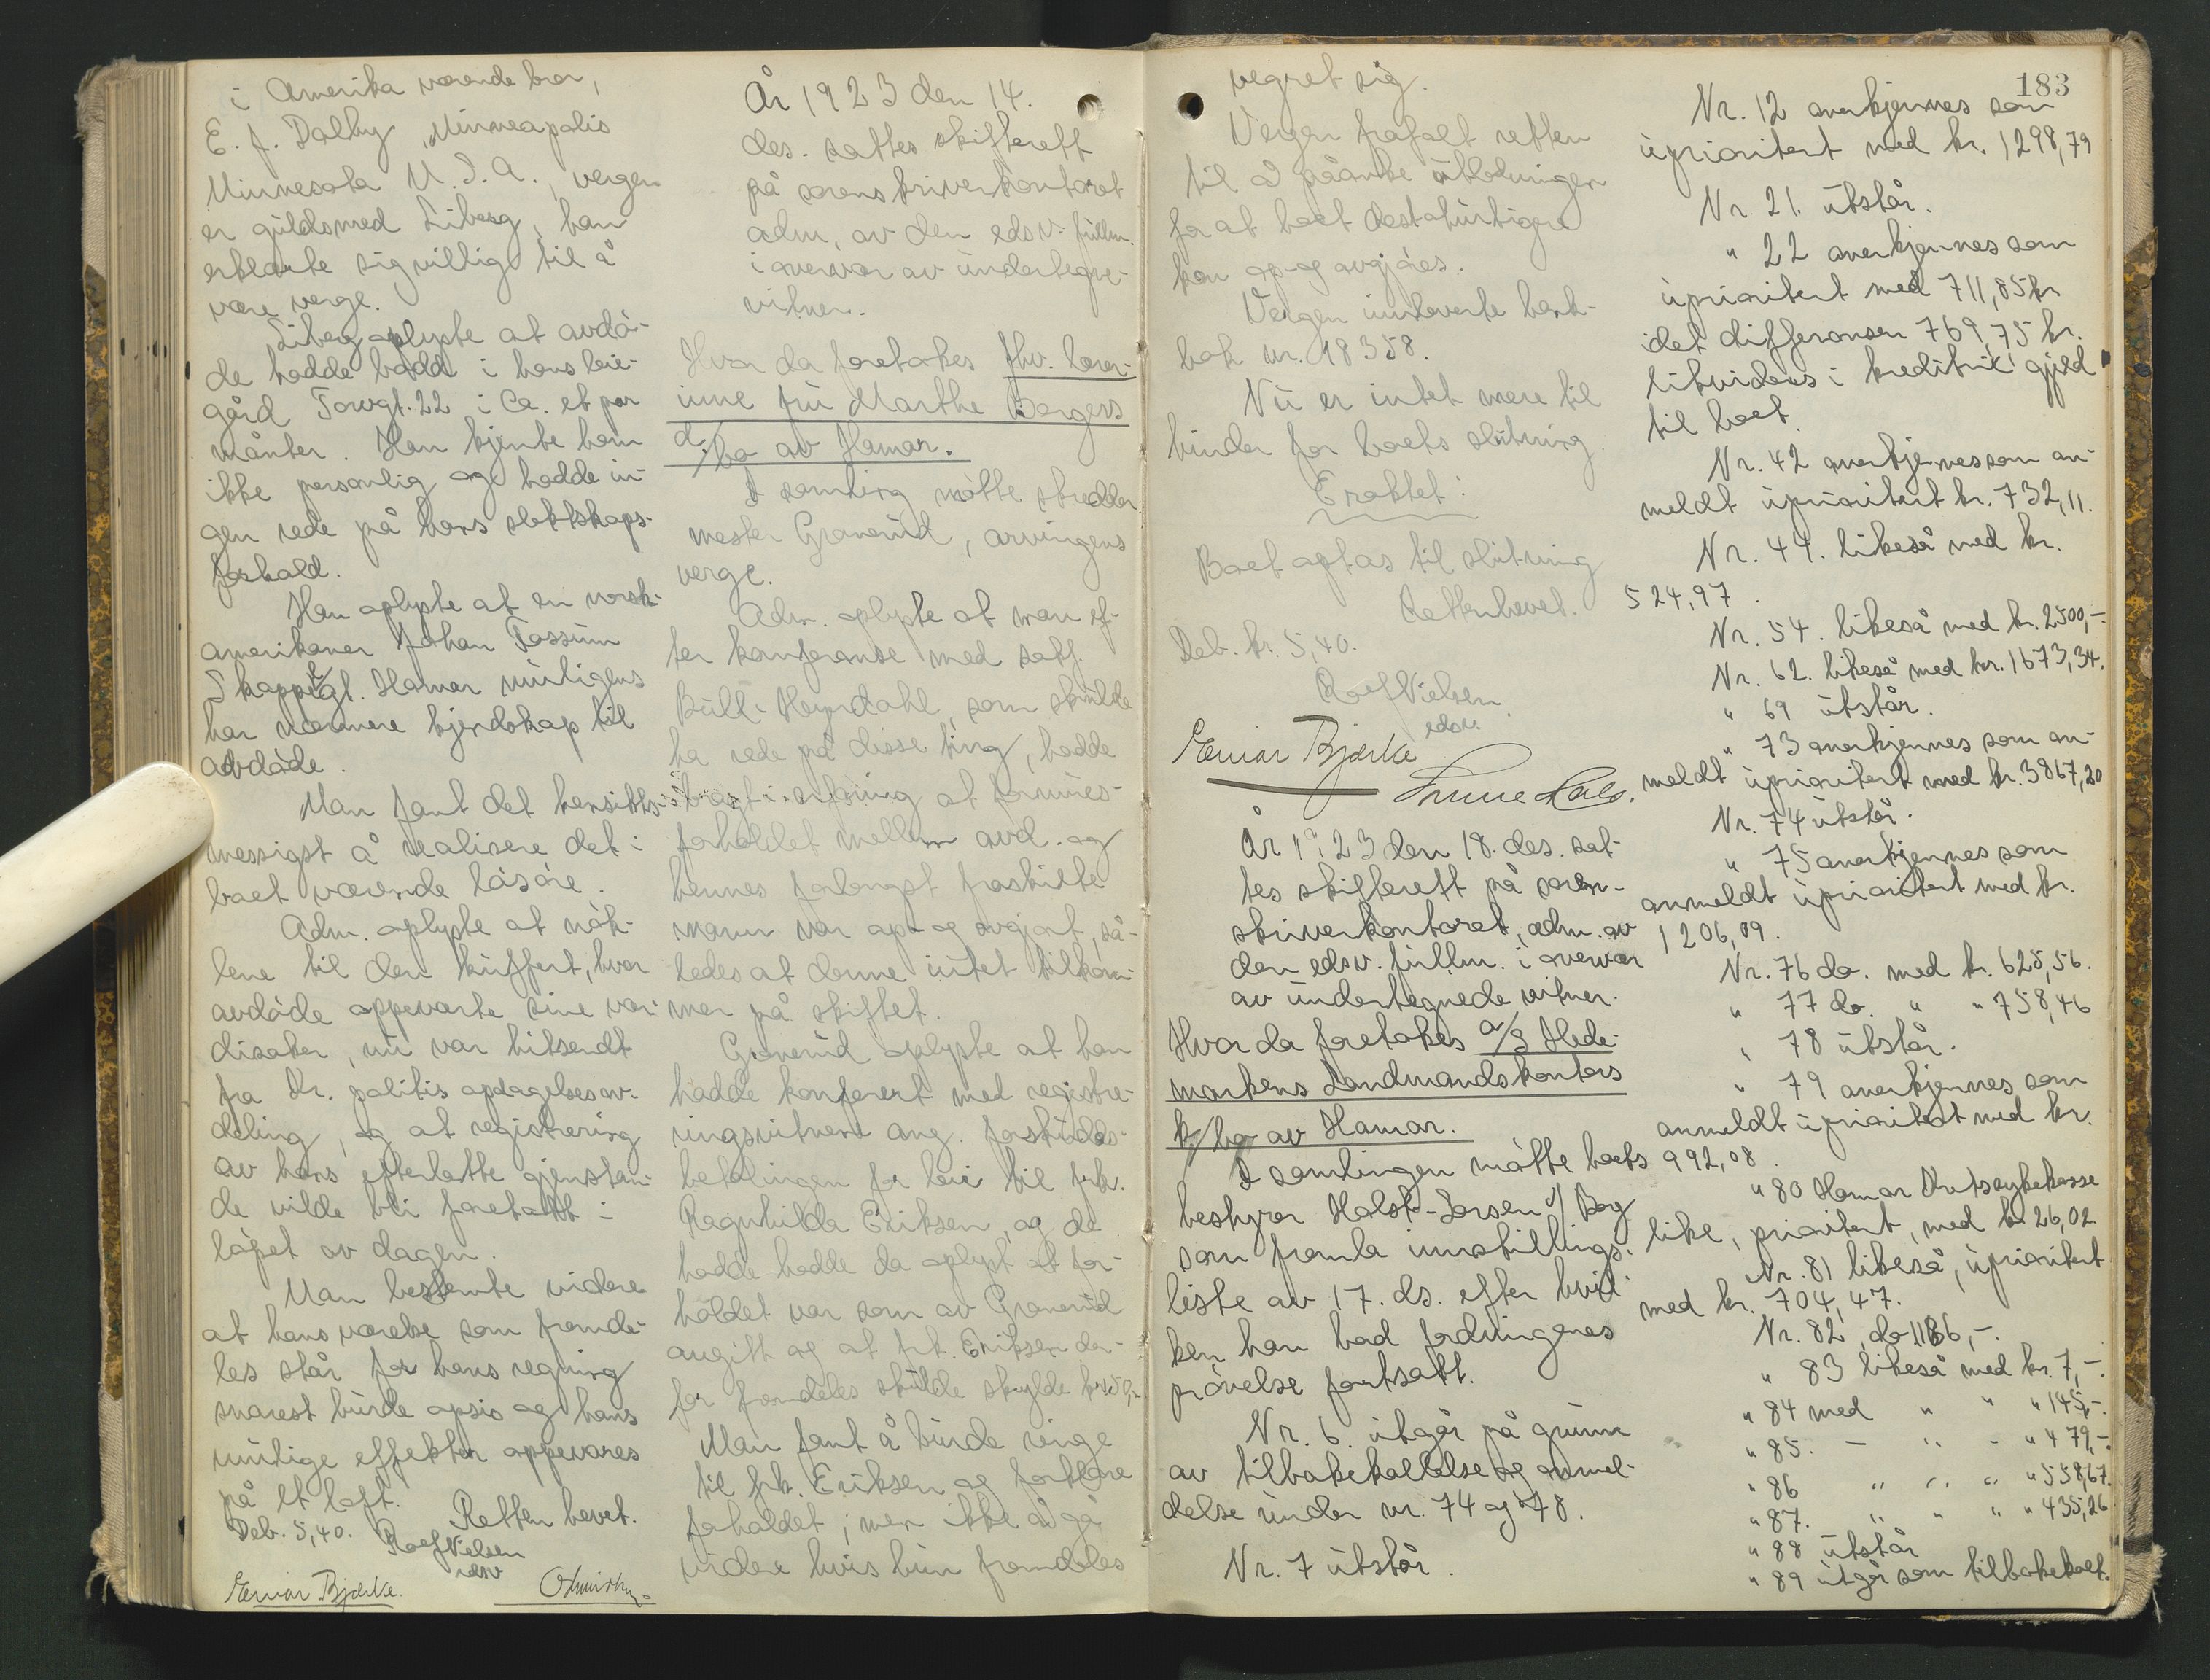 i Amerika værende bror,
E. J. Dalby, Minneapolis
Minnesota U.S.A., vergen
er guldsmed Siberg, han
erklærte sig villig til å
være verge.
Siberg oplyste at avdø-
de hadde bodd i hans leie-
gård Torvgt. 22 i ca. et par
månter. Han kjente ham
ikke personlig og hadde in-
gen rede på hans slektskaps-
forhold.
Han oplyste at en norsk-
amerikaner Johan Fossum
Skappelgt. Hamar muligens
har nærmere kjendskap til
avdøde.
Man fant det hensikts-
messigst å realisere det i
boet værende løsøre.
Adm. oplyste at nøk-
lene til den kuffert, hvor
avdøde oppevarte sine ver-
disaker, nu var hitsendt
fra Kr. politis opdagelsesav-
deling, og at registrering
av hans efterlatte gjenstan-
de vilde bli foretatt i
løpet av dagen.
Man bestemte videre
at hans værelse som fremde-
les står for hans regning
snarest burde opsies og hans
mulige effekter oppevares
på et loft.
Retten hevet.
Deb. 5,40.
Roef Nielsen
edsv
Einar Bjerke.
År 1923 den 14.
des. sattes skifterett
på sorenskriverkontoret
adm. av den edsv. fullm.
i overvær av undertegne-
vitner.
Hvor da foretakes fhv. lærer-
inne fru Marthe Borgers
d/bo av Hamar.
I samling møtte skredder-
mester Granerud, arvingens
verge.
Adm. oplyste at man ef-
ter konferanse med sakf.
Bull-Heyerdahl, som skulde
ha rede på disse ting, hadde
bragt i erfaring at formues-
forholdet mellem avd. og
hennes forlengst fraskilte
mann var opt- og avgjort, så-
ledes at denne intet tilkom-
mer på skiftet.
Granerud oplyste at han
hadde konferert med registre-
ringsvitnene ang. forskudds-
betalingen for leie til frk.
Ragnhilda Eriksen, og de
hadde hadde da oplyst at for-
holdet var som av Granerud
angitt og at frk. Eriksen der-
for fremdeles skulde skylde kr. 50,-
Man fant å burde ringe
til frk. Eriksen og forklare
forholdet; men ikke å gå
videre hvis hun fremdeles
183
vegret sig.
Vergen frafalt retten
til å påanke utlodningen
for at boet desto hurtigere
kan op- og avgjøres.
Vergen innleverte bank-
bok nr. 18358.
Nu er intet mere til
hinder for boets slutning
Eraktet:
Boet optas til slutning
Retten hevet.
Deb. kr. 5,40.
Roef Nielsen
edsv.
Einar Bjerke
År 1923 den 18. des. sat-
tes skifterett på soren-
skriverkontoret, adm. av
den edsv. fullm. i overvær
av undertegnede vitner.
Hvor da foretakes a/s Hede-
markens Landmandskontors
k/bo av Hamar.
I samlingen møtte boets
bestyrer Holst-Larsen v/ Berg
som framla innstillings-
liste av 17. ds. efter hvil-
ken han bad fordringenes
prøvelse fortsatt.
Nr. 6. utgår på grunn
av tilbakekallelse og anmel-
delse under nr. 74 og 78.
Nr. 7 utstår.
Nr. 12 anerkjennes som
uprioritert med kr. 1298,79
Nr. 21. utstår.
" 22 anerkjennes som
uprioritert med 711,85 kr.
idet differansen 769,75 kr.
likvideres i kreditrix' gjeld
til boet.
Nr. 42 anerkjennes som an-
meldt uprioritert kr. 732,11.
Nr. 44. likeså med kr.
524,97.
Nr. 54. likeså med kr. 2500,-.
Nr. 62. likeså med kr. 1673,34.
" 69 utstår.
" 73 anerkjennes som an-
meldt uprioritert med kr. 3867,20
Nr. 74 utstår.
" 75 anerkjennes som
anmeldt uprioritert med kr.
1206,09.
Nr. 76 do. med kr. 625,56.
" 77 do. " " 758,46
" 78 utstår.
" 79 anerkjennes som
anmeldt uprioritert med kr.
992,08.
" 80 Hamar Kretssykekasse
like, prioritert, med kr. 26,02.
Nr. 81 likeså, uprioritert
med kr. 704,47.
Nr. 82, do 1186,-.
" 83 likeså med kr. 7,-.
" 84 med " " " 145,-.
" 85. - " - " 479,-.
" 86 " " " " 558,67.
" 87. " " " " 435,26
" 88 utstår
" 89 utgår som tilbakekalt.